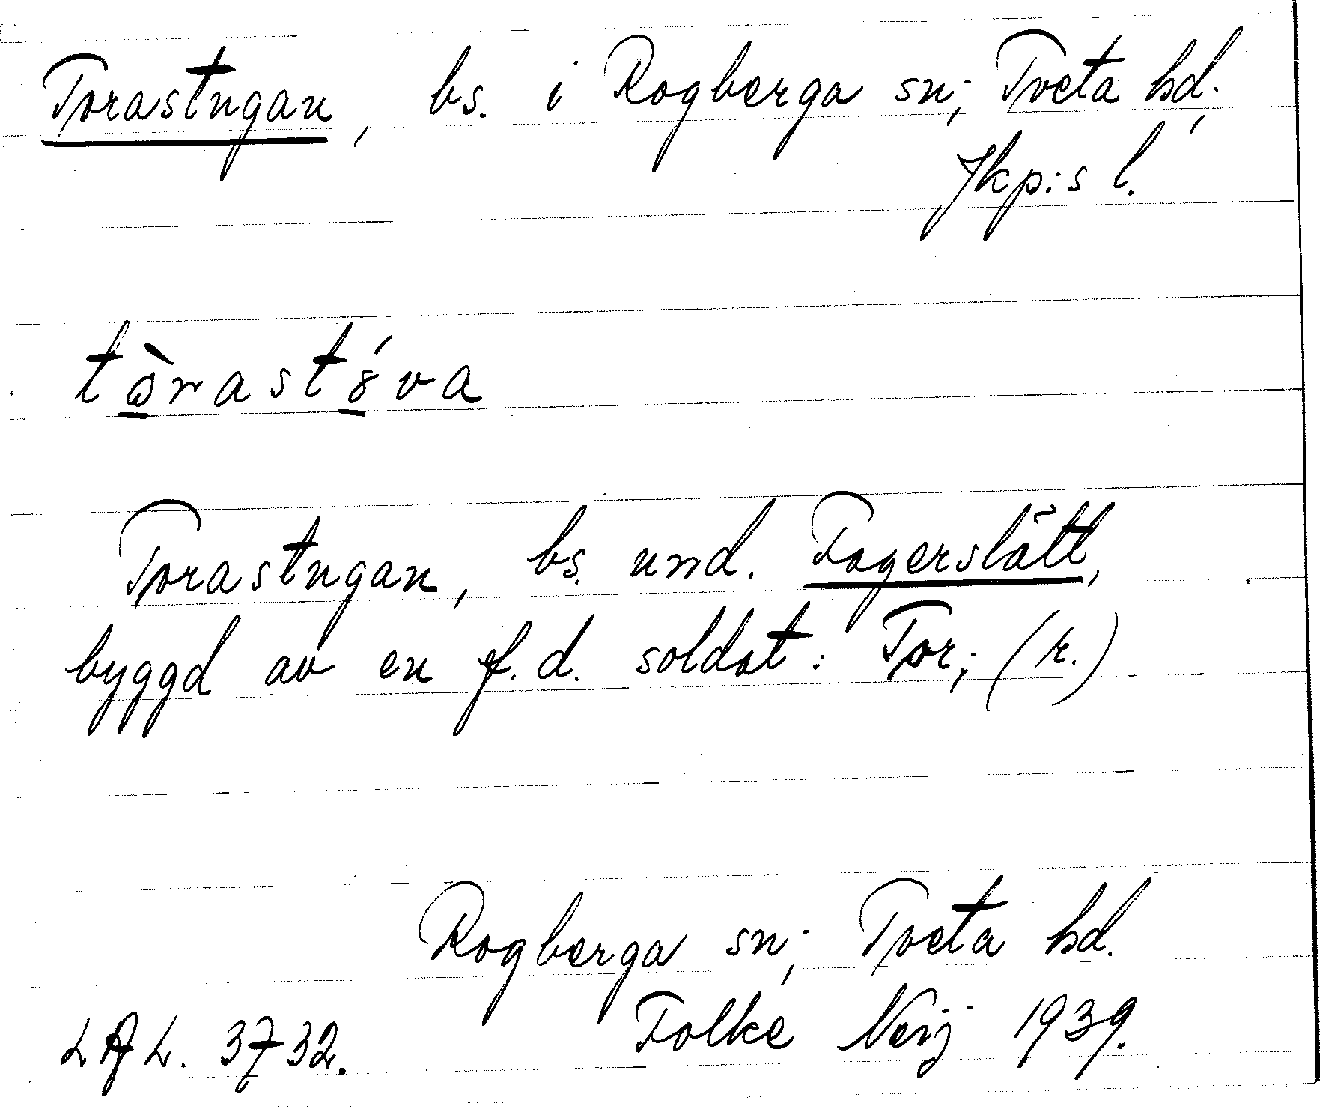 Torastugan, bs. i Rogberga sn; Tveta hd;
Jkp:s l.
tòrastóva
Torastugan, bs. und. Fagerslätt,
byggd av en f.d. soldat: Tor; (r.)
Rogberga sn; Tveta hd.
Folke Neij 1939.
LAL. 3732.